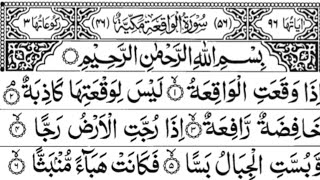 اٰيَاتُهَا ٩٦ (٥٦) سُوْرَةُ الْوَاقِعَةِ مَكِّيَّةٌ (٤٦) رُكُوْعَاتُهَا ٣
بِسْمِ اللّٰهِ الرَّحْمٰنِ الرَّحِيْمِ
اِذَا وَقَعَتِ الْوَاقِعَةُ ۝١ لَيْسَ لِوَقْعَتِهَا كَاذِبَةٌ ۝٢
خَافِضَةٌ رَّافِعَةٌ ۝٣ اِذَا رُجَّتِ الْاَرْضُ رَجًّا ۝٤
وَّبُسَّتِ الْجِبَالُ بَسًّا ۝٥ فَكَانَتْ هَبَآءً مُّنْۢبَثًّا ۝٦